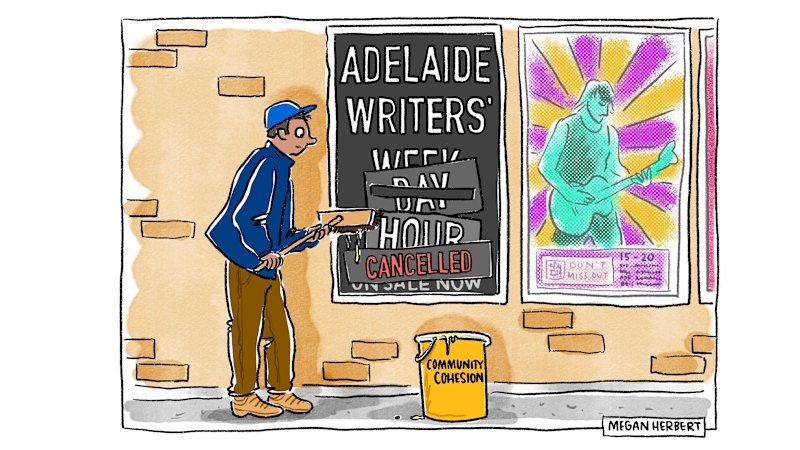 ADELAIDE
WRITERS'
WEEK
DAY
HOUR
CANCELLED
ON SALE NOW
DON'T
MISS OUT
15 - 20
COMMUNITY
COHESION
MEGAN HERBERT